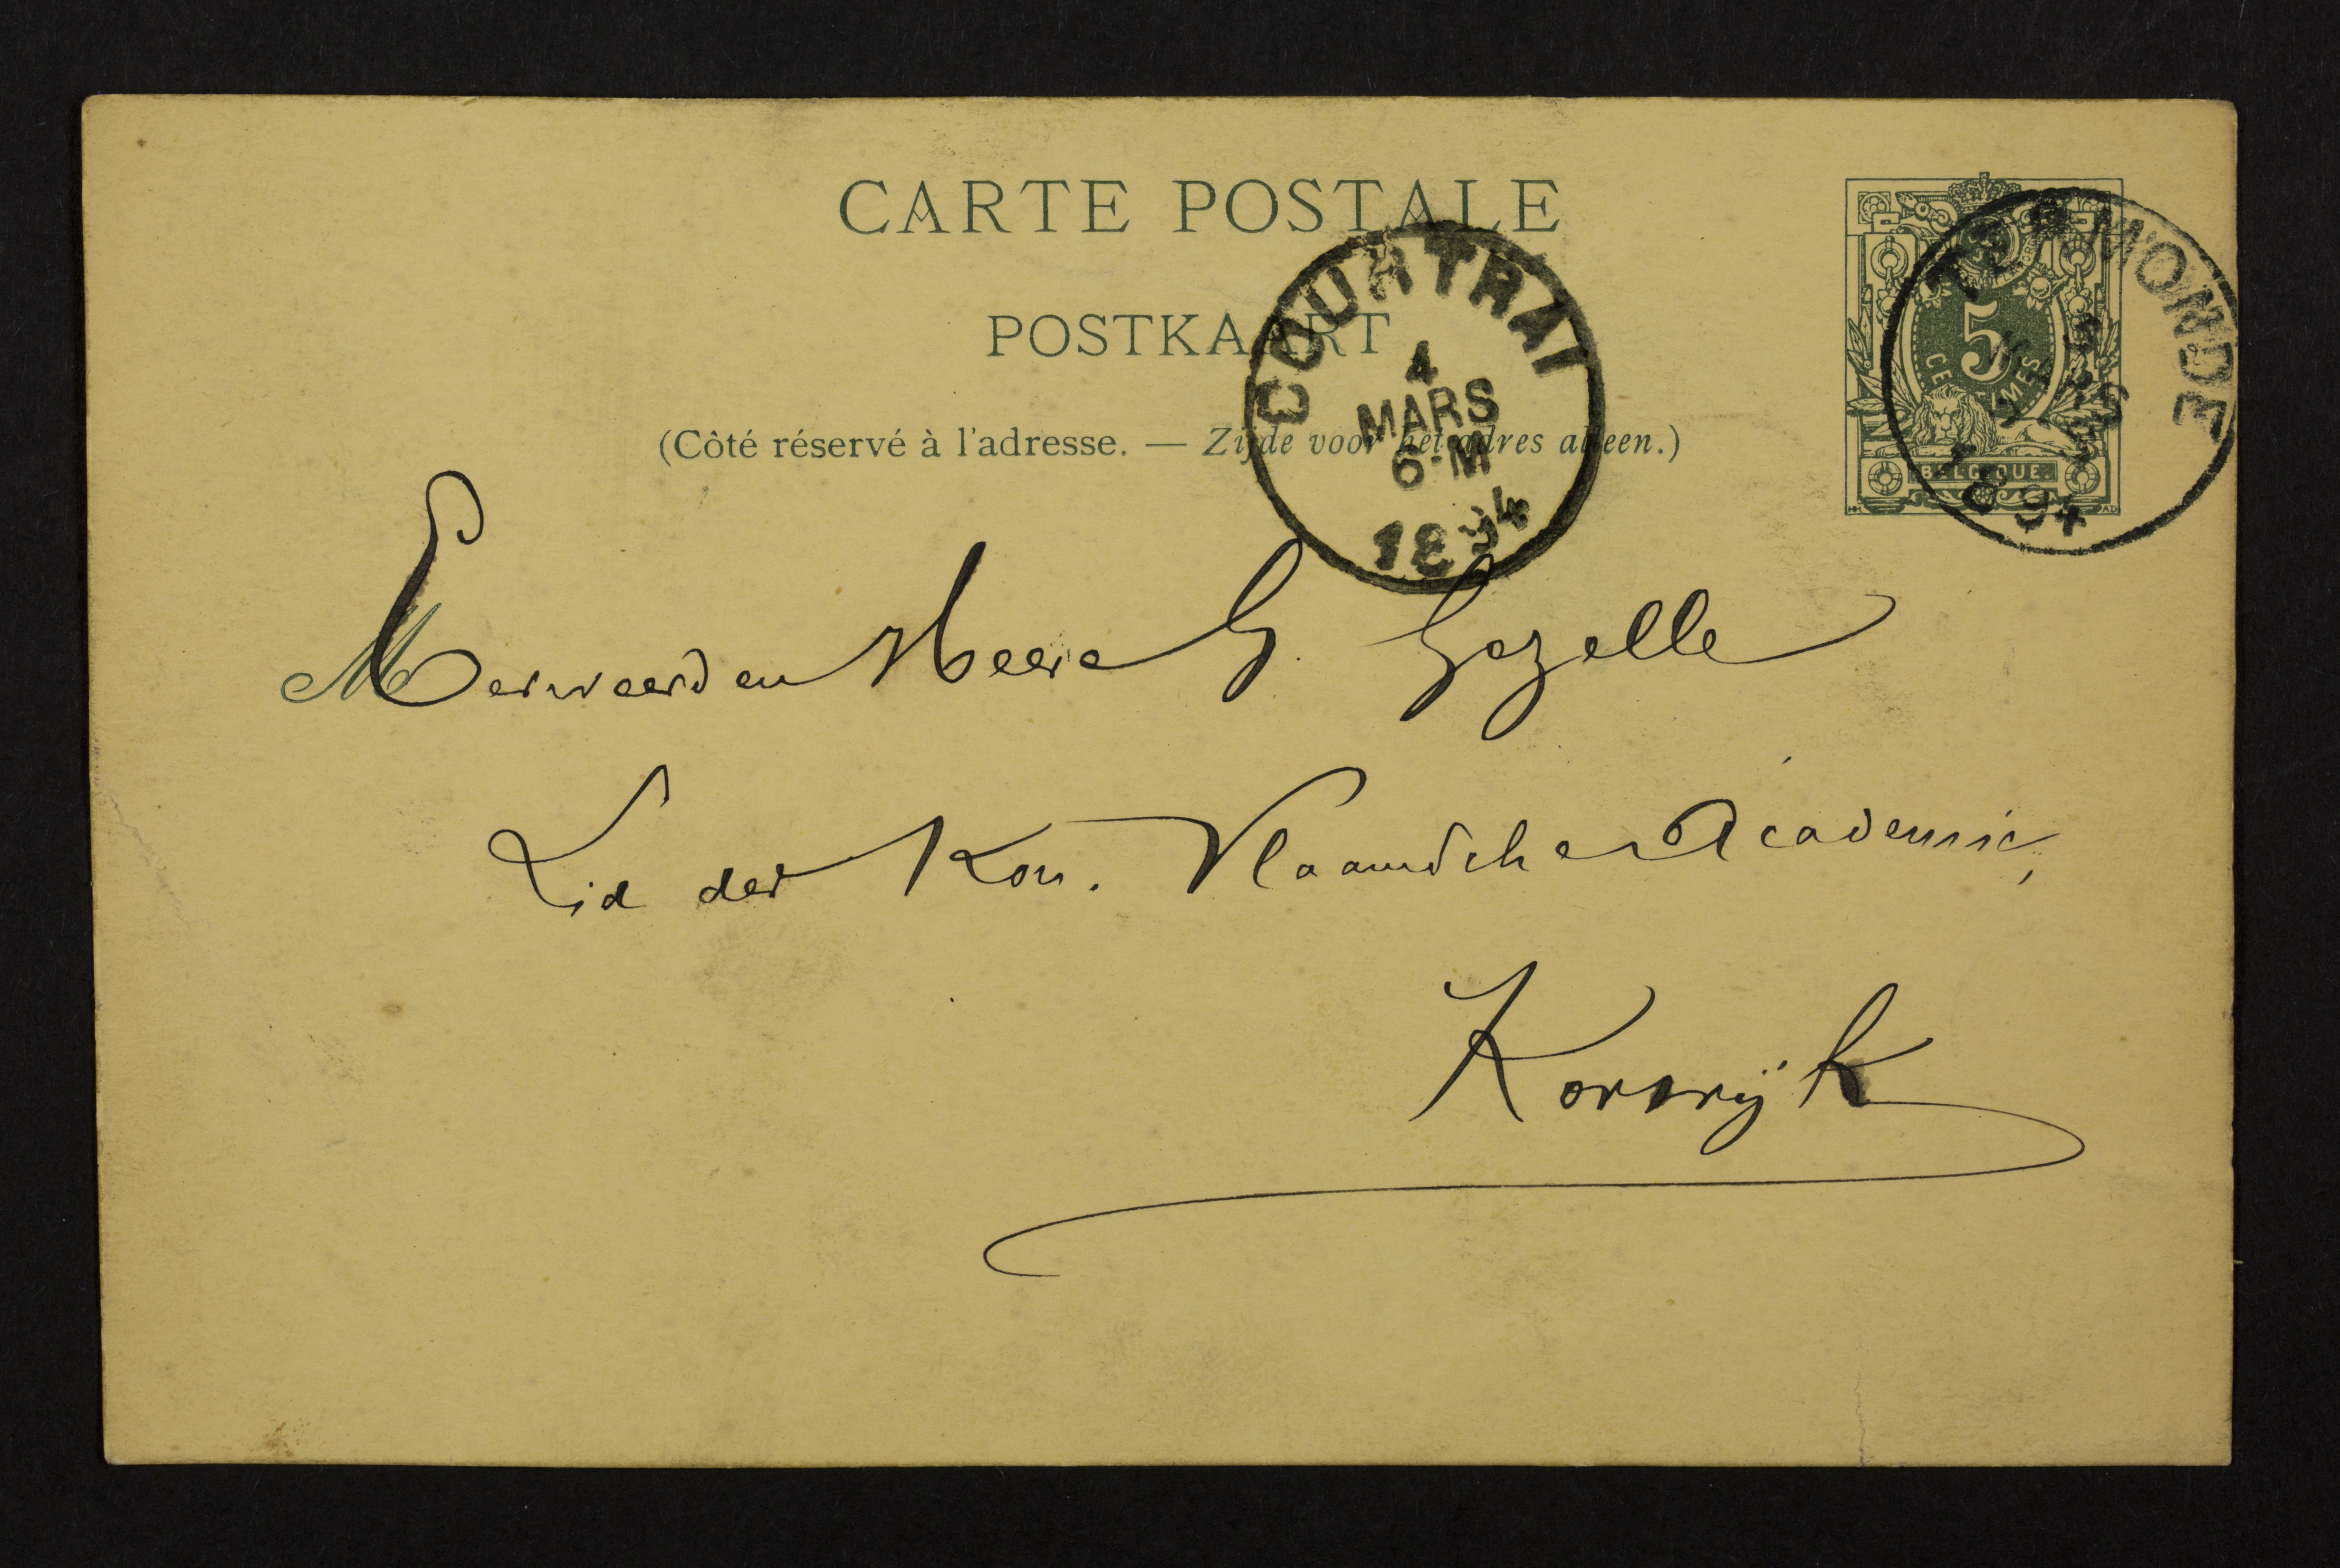 CARTE POSTALE
POSTKAART
(Côté réservé à l'adresse. — Zijde voor het adres alleen.)
COURTRAI
4
MARS
6-M
1894
5
CENTIMES
BELGIQUE
TERMONDE
MARS
1894
M
Eerweerden Heere G. Gezelle
Lid der Kon. Vlaamsche Academie,
Kortrijk